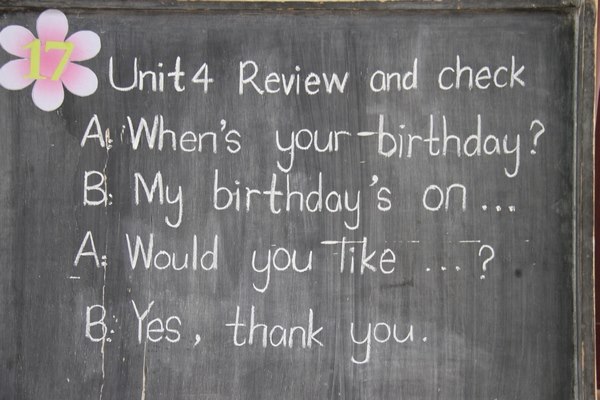 17
Unit 4 Review and check
A: When's your birthday?
B: My birthday's on ...
A: Would you like ... ?
B: Yes, thank you.